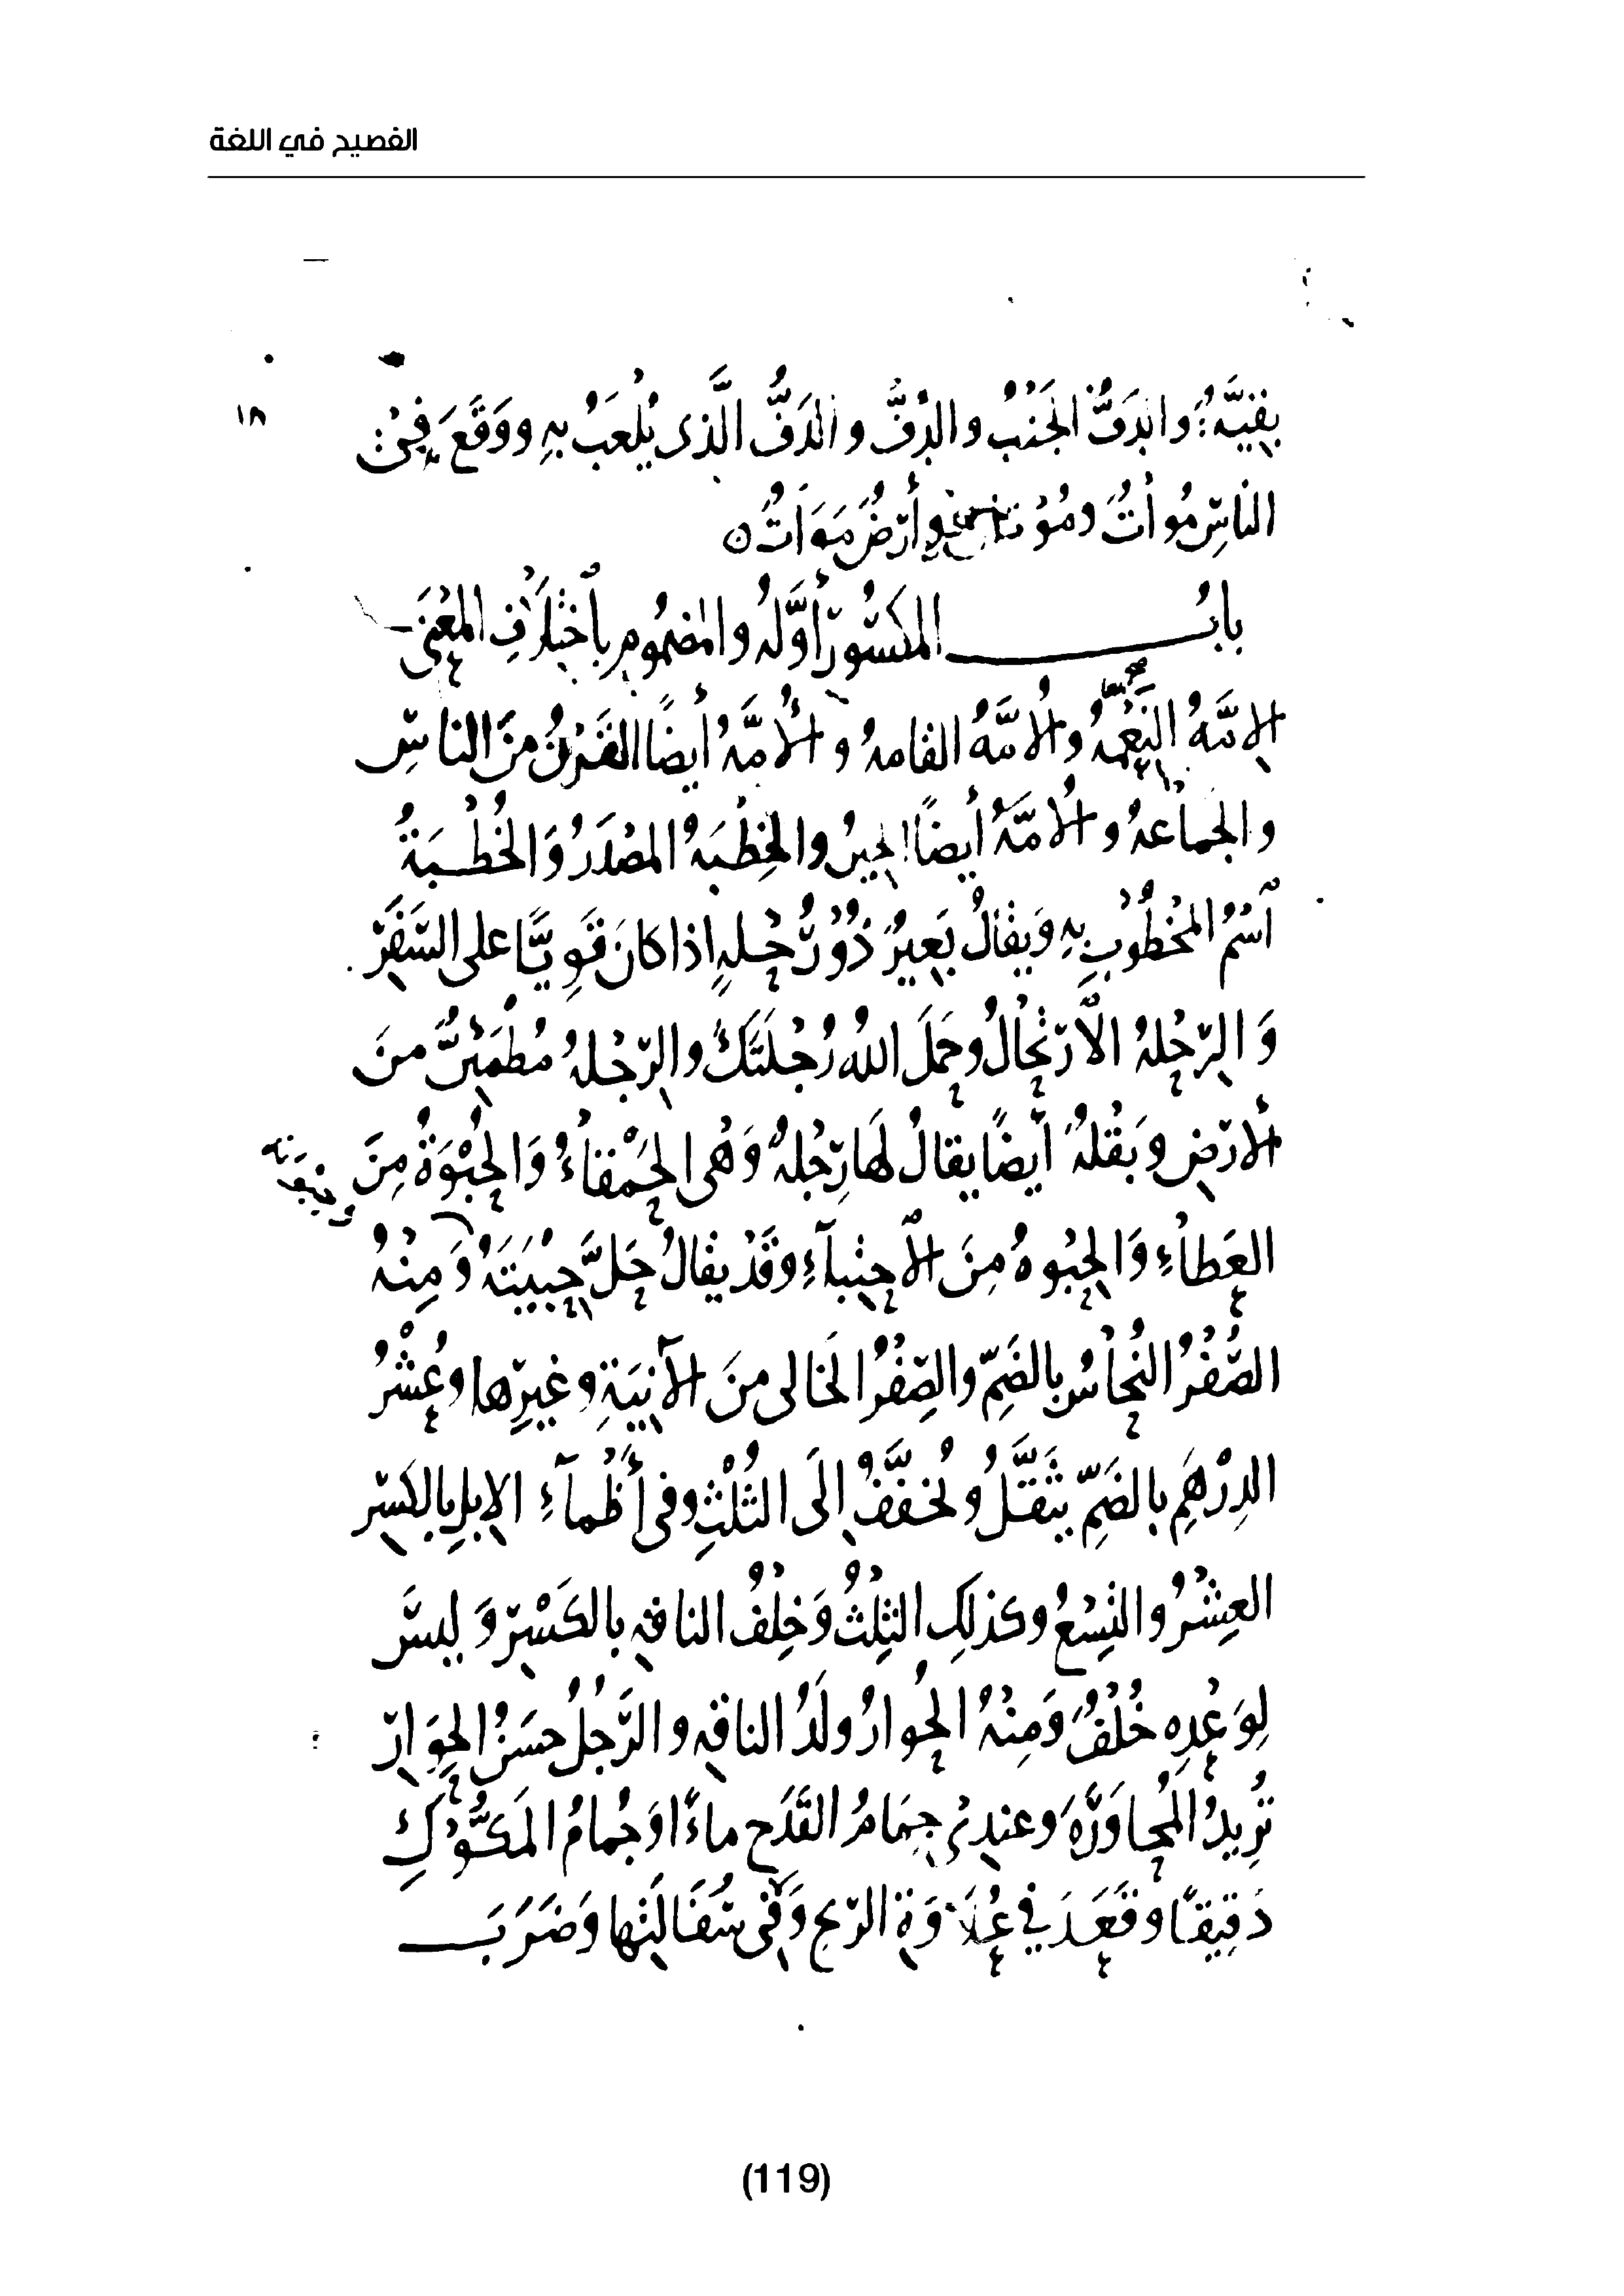 الفصيح في اللغة
١٨
بقيَّةٌ والدَفُّ الجَنْبُ والدُّفُّ والدَفُّ الَّذى يُلْعَبُ بهِ ووَقَعَ فى
الناسِ مُواتٌ ومُوْتَانٌ وأَرْضٌ مَوَاتٌ ه
بابُ المكسُورِ أوَّلُه والمضمُومِ بٱختِلَافِ المعْنَى
الإمَّهُ النِّعْمهُ والأُمّهُ القامهُ والأُمَّهُ أيضًا القَرْنُ منَ الناسِ
صح
والجماعهُ والأُمَّهُ أيضًا الحينُ والخِطْبَهُ المصْدَرُ وَالخُطْبَةُ
ٱسْمُ المخْطُوبِ بِهِ وَيقالُ بَعِيرٌ ذُوْ رُجْلهٍ اذا كانَ قَوِيًّا على السَّفَرِ
وَ الرّجْلهُ الٱرْتجالُ وحَمَلَ اللهُ رُجْلَتَكَ والرّجْلهُ مُطْمَئِنٌّ منَ
الأرْضِ وبَقْلهٌ أيضًا يقالُ لهَا رِجْلهٌ وَهْىَ الحَمْقاءُ وَالحُِبْوَةُ مِنَ
العَطاءِ وَالحِبْوهُ مِنَ الٱحتِباءِ وقَدْ يقالُ حَلَّ حِبْيَتَهُ وَمِنْهُ
الصُّفْرُ النُحاسُ بالضَمِّ والصِّفْرُ الخَالى منَ الآنِيَةِ وغيرِها وعُشْرُ
الدِرْهَمِ بالضَمِّ يثَقَّلُ وتُخفَّفُ إلَى الثُلْثِ وفى أَظْماءِ الإبلِ بالكَسْرِ
العِشْرُ والتِسْعُ وكذلِك الثِلْثُ وَخِلْفُ الناقهِ بالكَسْرِ وَ ليسَ
لِوَعْدِهِ خُلْفٌ وَمِنْهُ الحُوارُ ولَدُ الناقهِ والرَّجُلُ حسَنُ الحِوَارِ
تُرِيدُ المُحاوَرَهَ وعندِى جِمَامُ القَدَحِ ماءً او جُمامُ المَكُّوْكِ
دَقِيقًا وقَعَدَ فى عُلَاوَةِ الرّيحِ وَفى سُفَالَتِها وَضَرَبَ
(119)